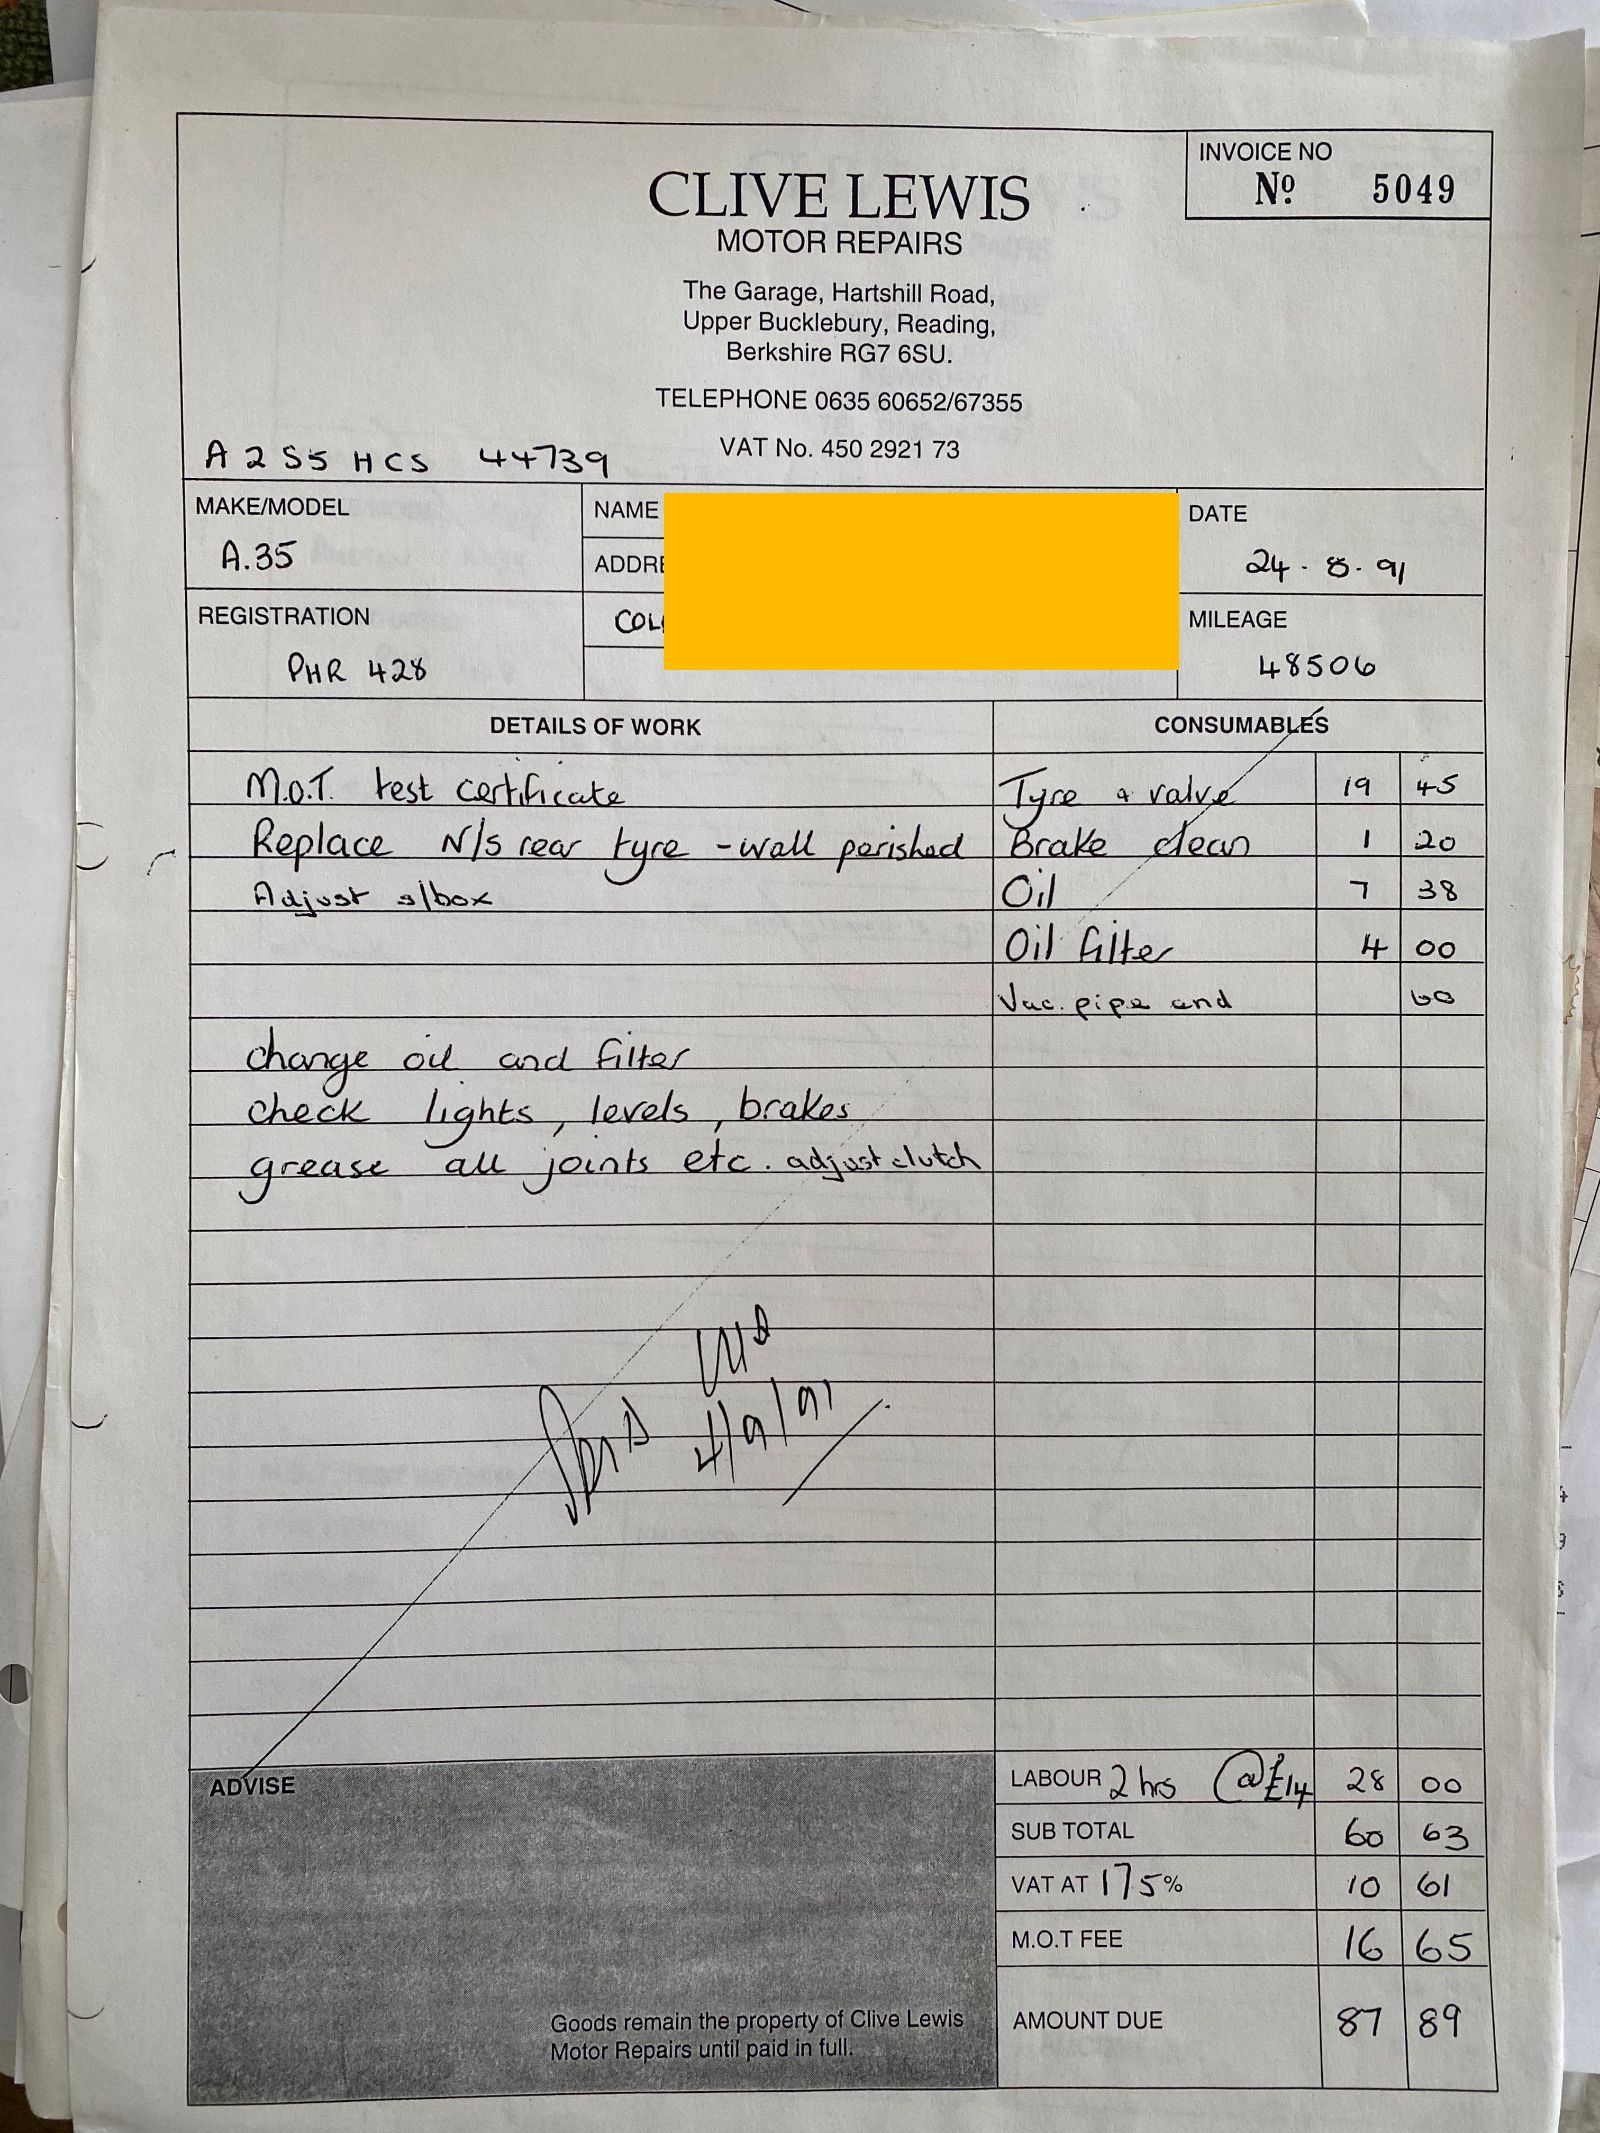 INVOICE NO
Nº 5049
CLIVE LEWIS
MOTOR REPAIRS
The Garage, Hartshill Road,
Upper Bucklebury, Reading,
Berkshire RG7 6SU.
TELEPHONE 0635 60652/67355
VAT No. 450 2921 73
A 2 S5 HCS 44739
MAKE/MODEL
A.35
NAME
ADDRE
COL
DATE
24-8-91
REGISTRATION
PHR 428
MILEAGE
48506
DETAILS OF WORK CONSUMABLES
M.O.T. test certificate Tyre & valve 19 45
Replace N/S rear tyre - wall perished Brake clean 1 20
Adjust s/box Oil 7 38
Oil filter 4 00
Vac. pipe end 60
change oil and filter
check lights, levels, brakes
grease all joints etc. adjust clutch
4/9/91
ADVISE
LABOUR 2 hrs @£14 28 00
SUB TOTAL 60 63
VAT AT 175% 10 61
M.O.T FEE 16 65
AMOUNT DUE 87 89
Goods remain the property of Clive Lewis
Motor Repairs until paid in full.